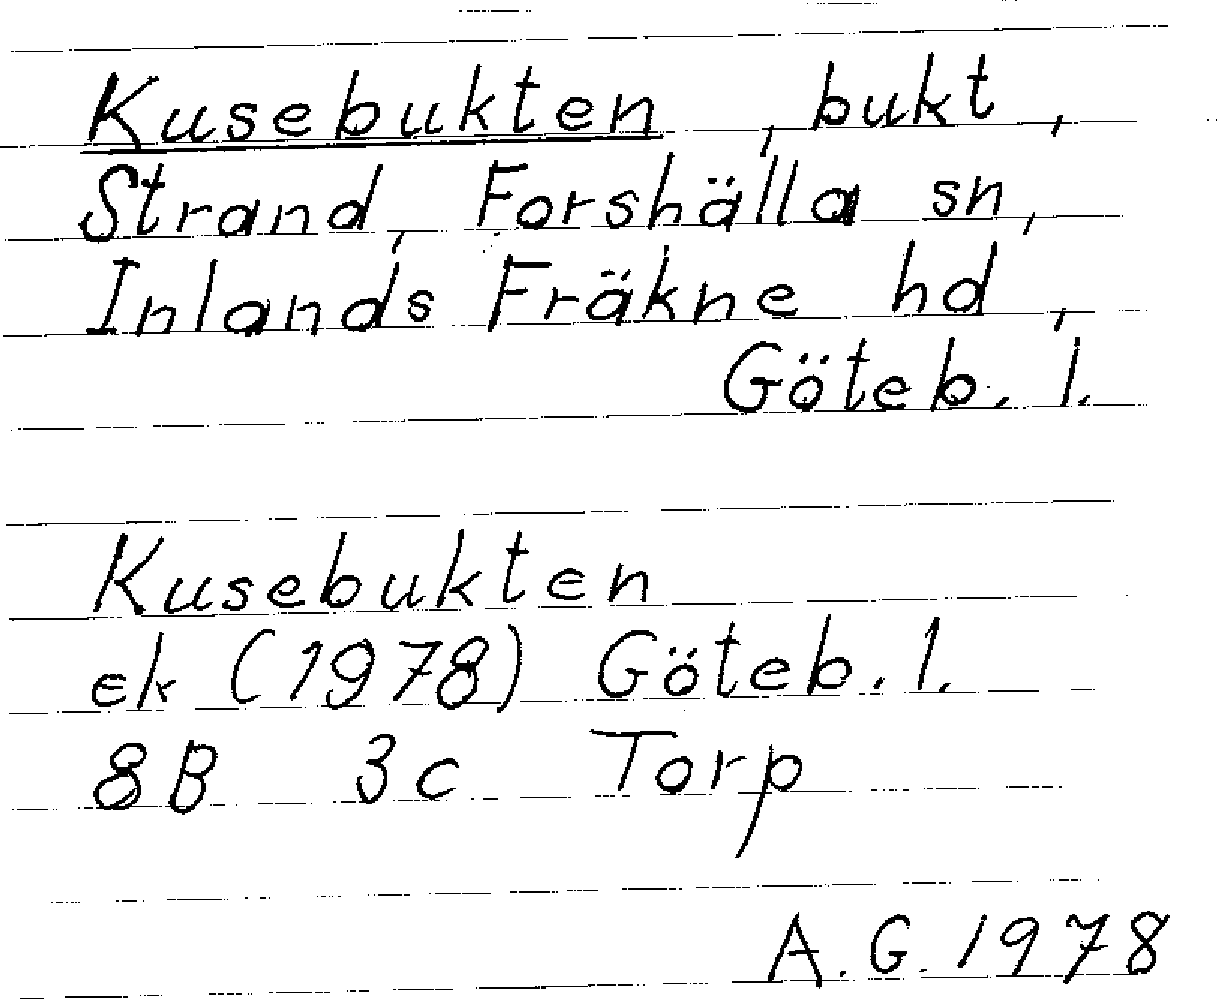 Kusebukten, bukt,
Strand, Forshälla sn,
Inlands Fräkne hd,
Göteb. l.
Kusebukten
ek (1978) Göteb. l.
8B 3c Torp
A.G. 1978